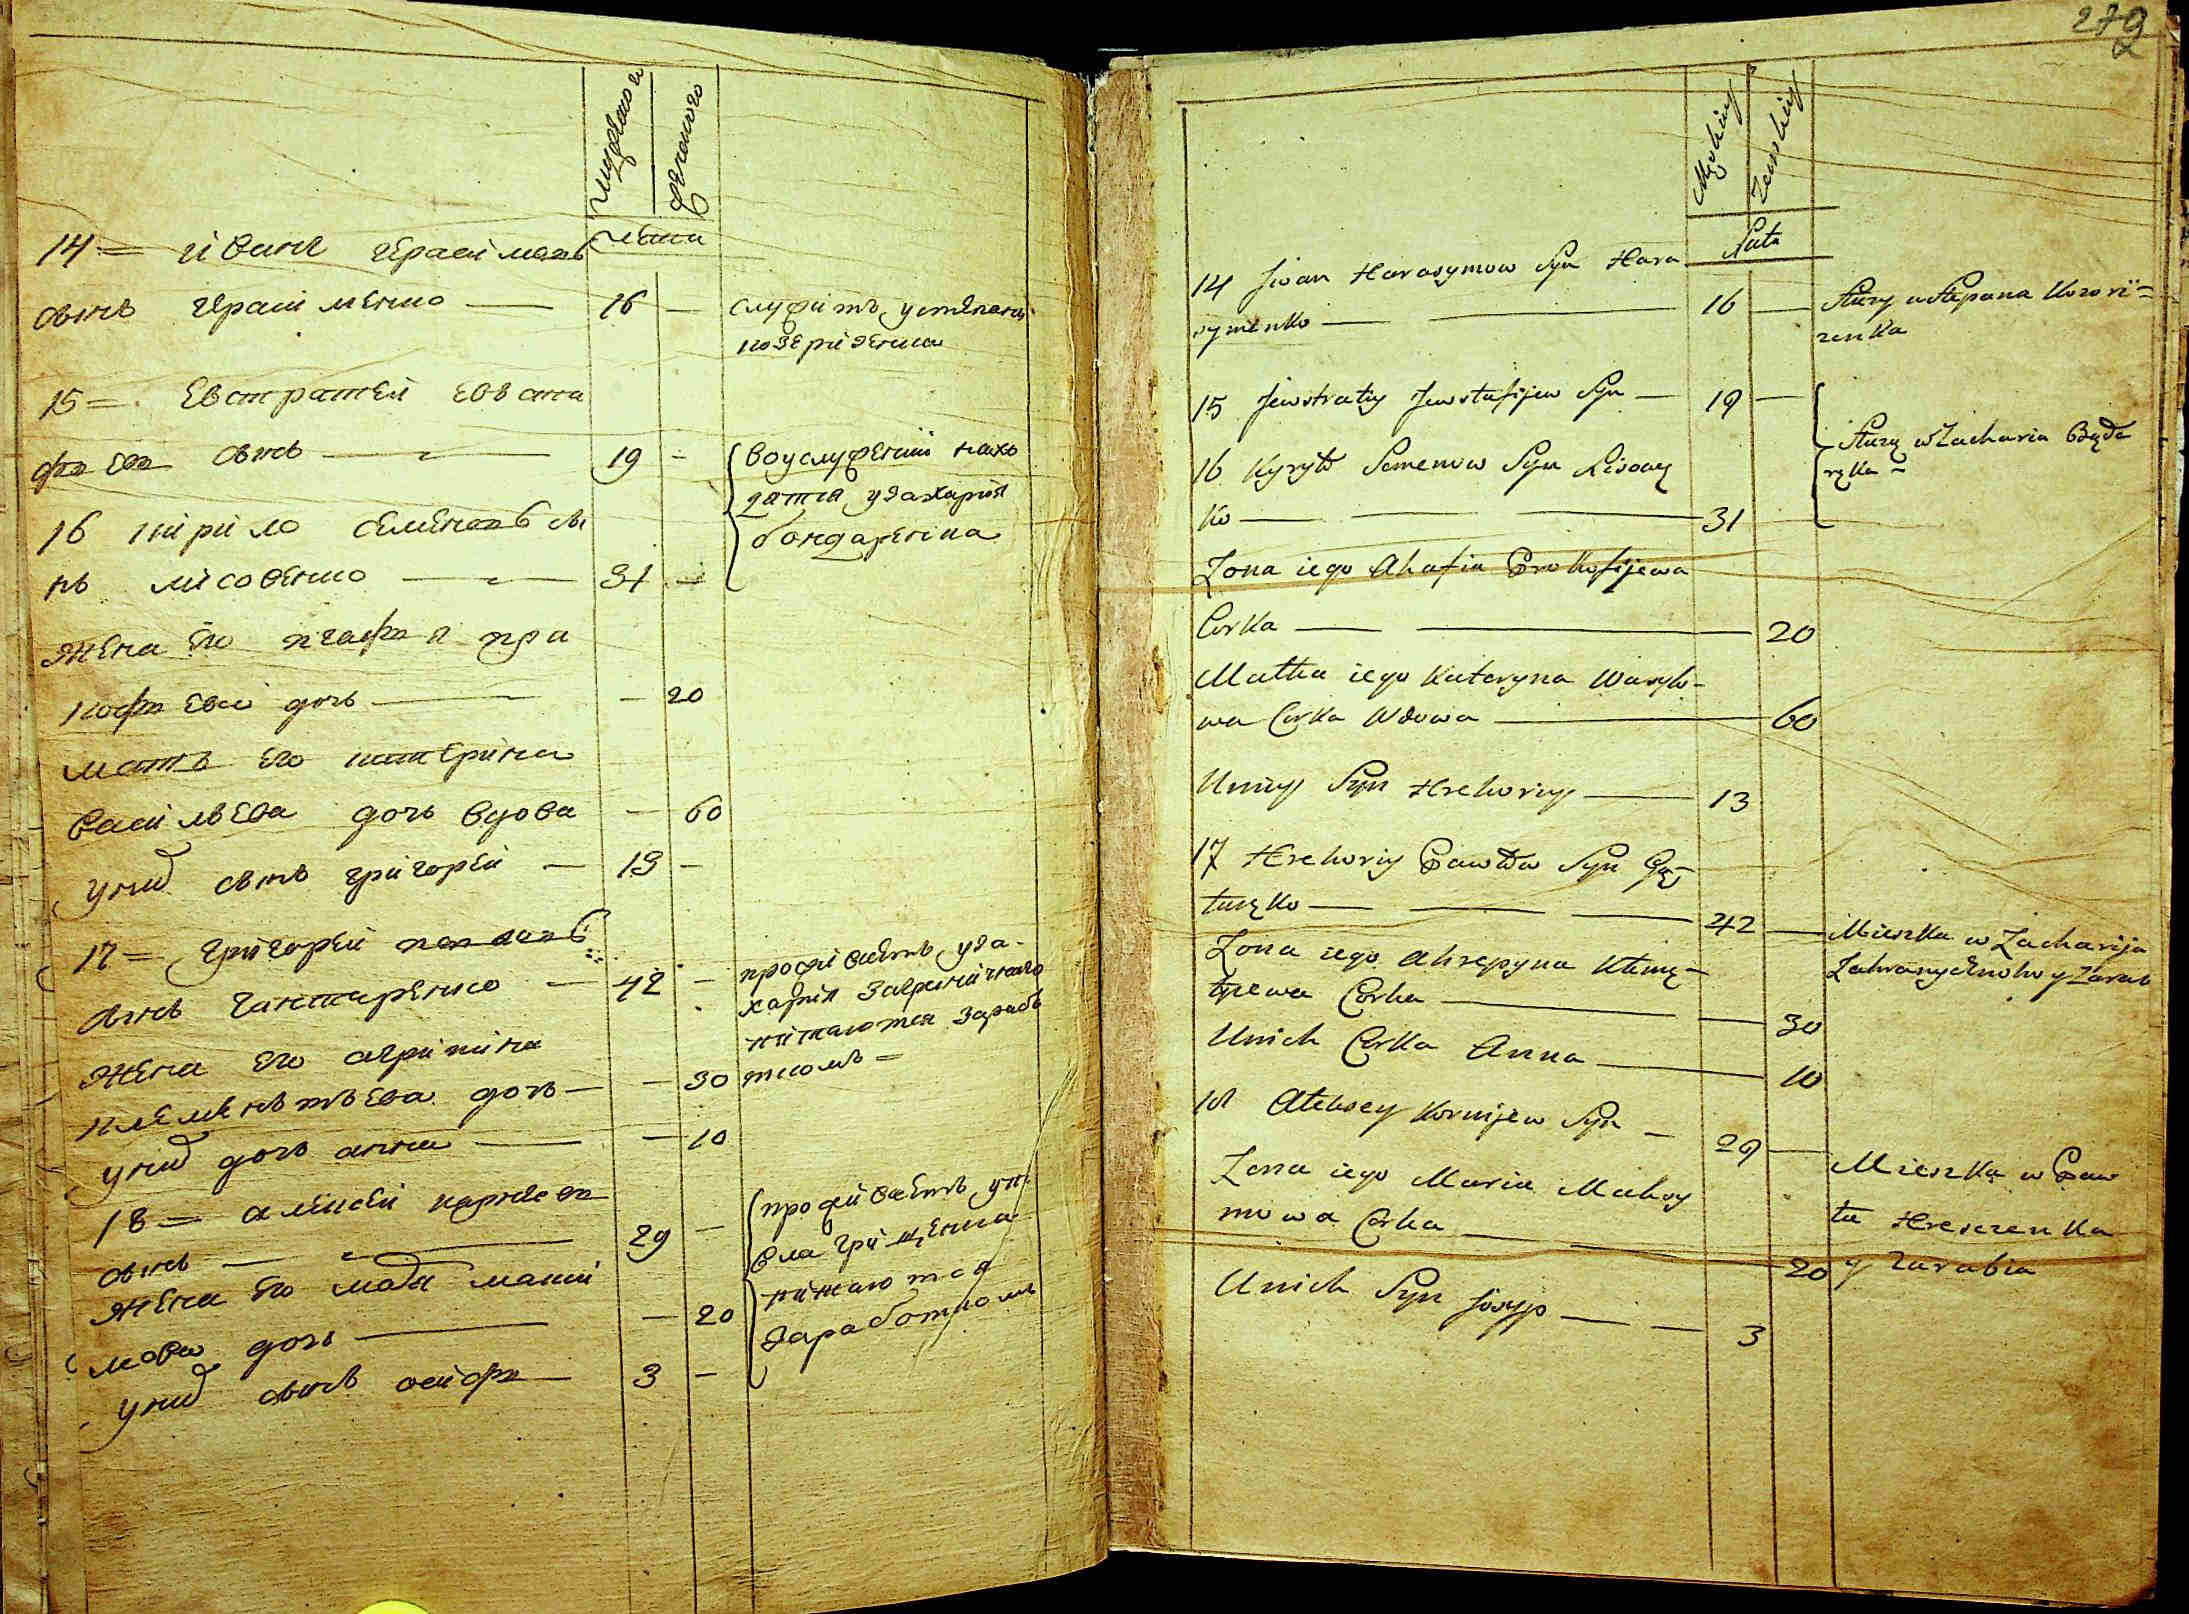 мужеска
женского
лета
14 = иванъ герасимовъ
сынъ герасименко — 16 — служитъ устепана
козеризенка
15 = евстратей евста
фиевъ сынъ — 19 - воуслужении нахо
дятся узахария
бондаренка
16 кирило семеновъ сы
нъ лисовенко — 31 -
жена его агафия про
кофиева дочь — - 20
мать его катерина
васильева дочь вдова — 60
унихъ сынъ григорей — 13 -
17 = григорей павловъ
сынъ гантаренко — 42 - проживаетъ уза-
хария заграничнаго
питаются зарабо
ткомъ =
жена его агрипина
клементьева дочь — - 30
унихъ дочь анна — - 10
18 = алексей корнеев
сынъ — 29 - проживаетъ упа
вла грищенка
питаются
заработкомъ
жена его мария макси
мова дочь — - 20
унихъ сынъ осифъ — 3 -
272
Męskiey
Zenskiey
Lata
14 Jwan Harasymow Syn Hara
symenko — 16 — Służy w Stepana Kozeri=
zenka
15 Jewstratiy Jewstafijew Syn — 19 —
Służą w Zacharia Będa
ręka -
16 Kyryło Semenow Syn Lisowę
Ko — 31
Zona iego Ahafia Prokofijewa
Corka — 20
Matka iego Kateryna Wasyle-
wa Corka Wdowa — 60
Unich Syn Hrehoriy — 13
17 Hrehoriy Pawłow Syn Gę-
taręko — 42 — Mieszka w Zacharija
Zahranycznoho y Zarab
Zona iego Ahrepyna Klimę-
tyewa Corka — 30
Unich Corka Anna — 10
18 Aleksey Kornijew Syn — 29 — Mieszka w Paw
ła Hreszczenka
y Zarabia
Zona iego Maria Maksy
mowa Corka — 20
Unich Syn Josyp — 3